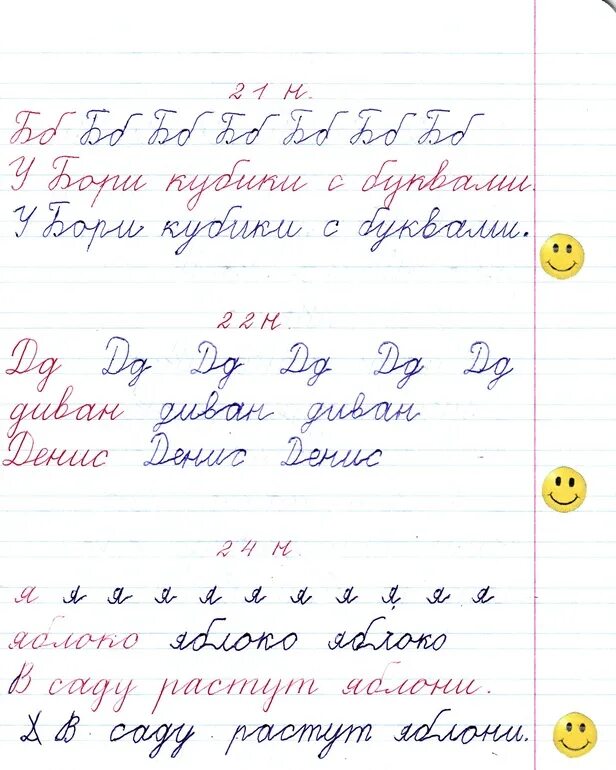 21 н.
Бб Бб Бб Бб Бб Бб Бб
У Бори кубики с буквами.
У Бори кубики с буквами.
22 н.
Дд Дд Дд Дд Дд Дд
диван диван диван
Денис Денис Денис
24 н.
я я я я я я я я я я я
яблоко яблоко яблоко
В саду растут яблони.
В саду растут яблони.